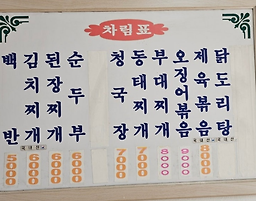 차림표
백반
김치찌개
된장찌개
순두부
청국장
동태찌개
부대찌개
오징어볶음
제육볶음
닭도리탕
5000
6000
6000
6000
7000
7000
8000
9000
8000